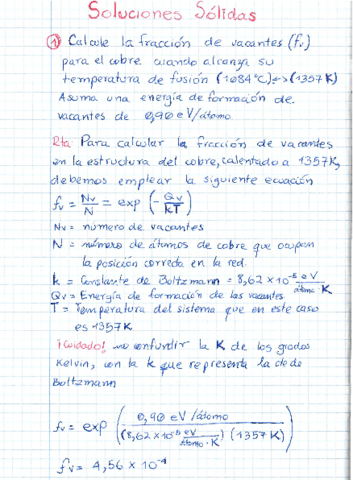 Soluciones Sólidas
① Calcule la fracción de vacantes (fv)
para el cobre cuando alcanza su
temperatura de fusión (1084°C) => (1357 K)
Asuma una energía de formación de
vacantes de 0,90 eV/átomo
Rta: Para calcular la fracción de vacantes
en la estructura del cobre, calentado a 1357K,
debemos emplear la siguiente ecuación
fv = Nv/N = exp (- Qv/kT)
Nv = número de vacantes
N = número de átomos de cobre que ocupan
la posición correcta en la red.
k = Constante de Boltzmann = 8,62 x 10^-5 eV/átomo K
Qv = Energía de formación de las vacantes
T = Temperatura del sistema que en este caso
es 1357K
¡Cuidado! no confundir la K de los grados
Kelvin, con la k que representa la cte de
Boltzmann
fv = exp ( 0,90 eV/átomo / (8,62 x 10^-5 eV/átomo·K) (1357 K) )
fv = 4,56 x 10^-4